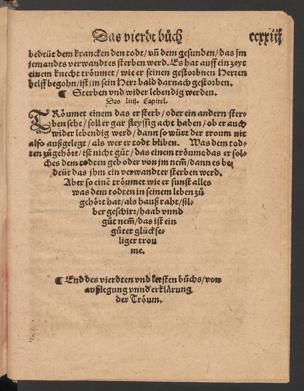 Das vierdt bůch ccxxiij
bedeüt dem krancken den todt/ vñ dem gesunden/ das jm
jemandts verwandtes sterben werd. Es hat auff ein zeyt
einem knecht trōumet/ wie er seinen gestorbnen Herren
helff begobn/ ist jm sein Herr bald darnach gestorben.
¶ Sterben vnd wider lebendig werden.
Das Capitel.
TRōumet einem das er sterb/ oder ein andern ster-
ben sehe/ soll er gar fleyssig acht haben/ ob er auch
wider lebendig werd/ dann so würt der troum nit
also außgelegt/ als wer er todt bliben. Was dem tod-
ten zůgehōrt/ ist nicht gůt/ das einem trōume das er sol-
ches dem todten geb oder von jm nem̃/ dann es be-
deüt das jhm ein verwandter sterben werd.
Aber so einē trōumet wie er sunst alles
was dem todten in seinen leben zů
gehōrt hat/ als haußraht/ sil-
ber geschirr/ haab vnnd
gůt nem̃/ das ist ein
gůter glückse-
liger trou
me.
¶ End des vierdten vnd letsten bůchs/ von
außlegung vnnd erklārung
der Trōum.